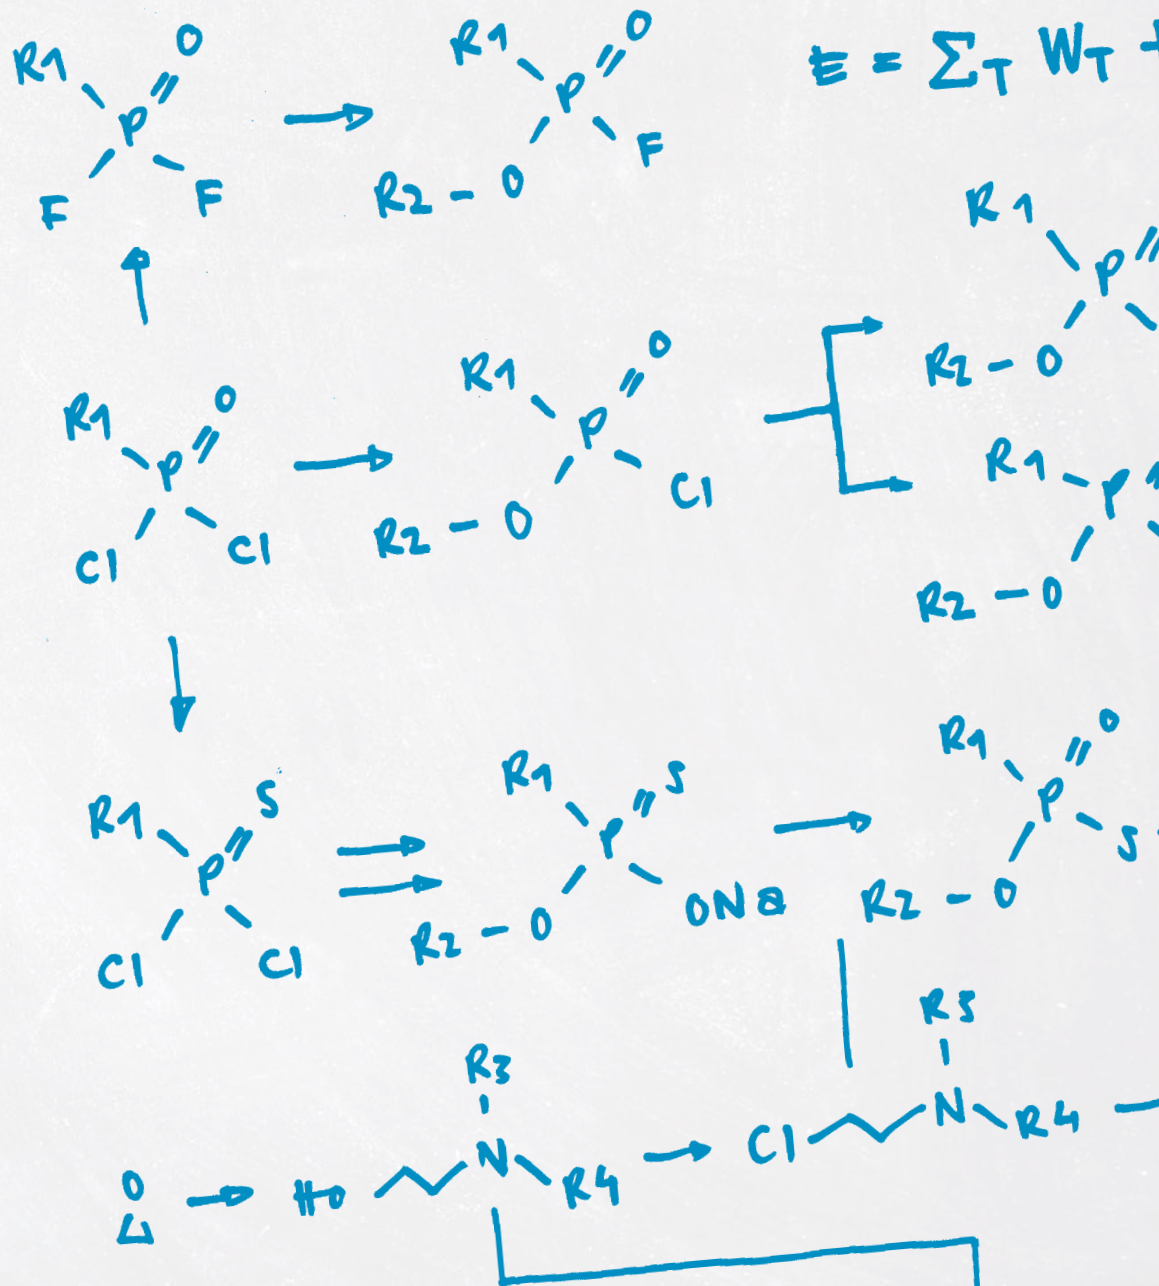 R1 O
P
F F
R1 O
P
R2 - O F
E = Σ_T W_T
R1
P
R2 - O
R1 O
P
Cl Cl
R1 O
P
R2 - O Cl
R1 P
R2 - O
R1 S
P
Cl Cl
R1 S
P
R2 - O ONa
R1 O
P
R2 - O S
O
R3
HO N R4
Cl N R4